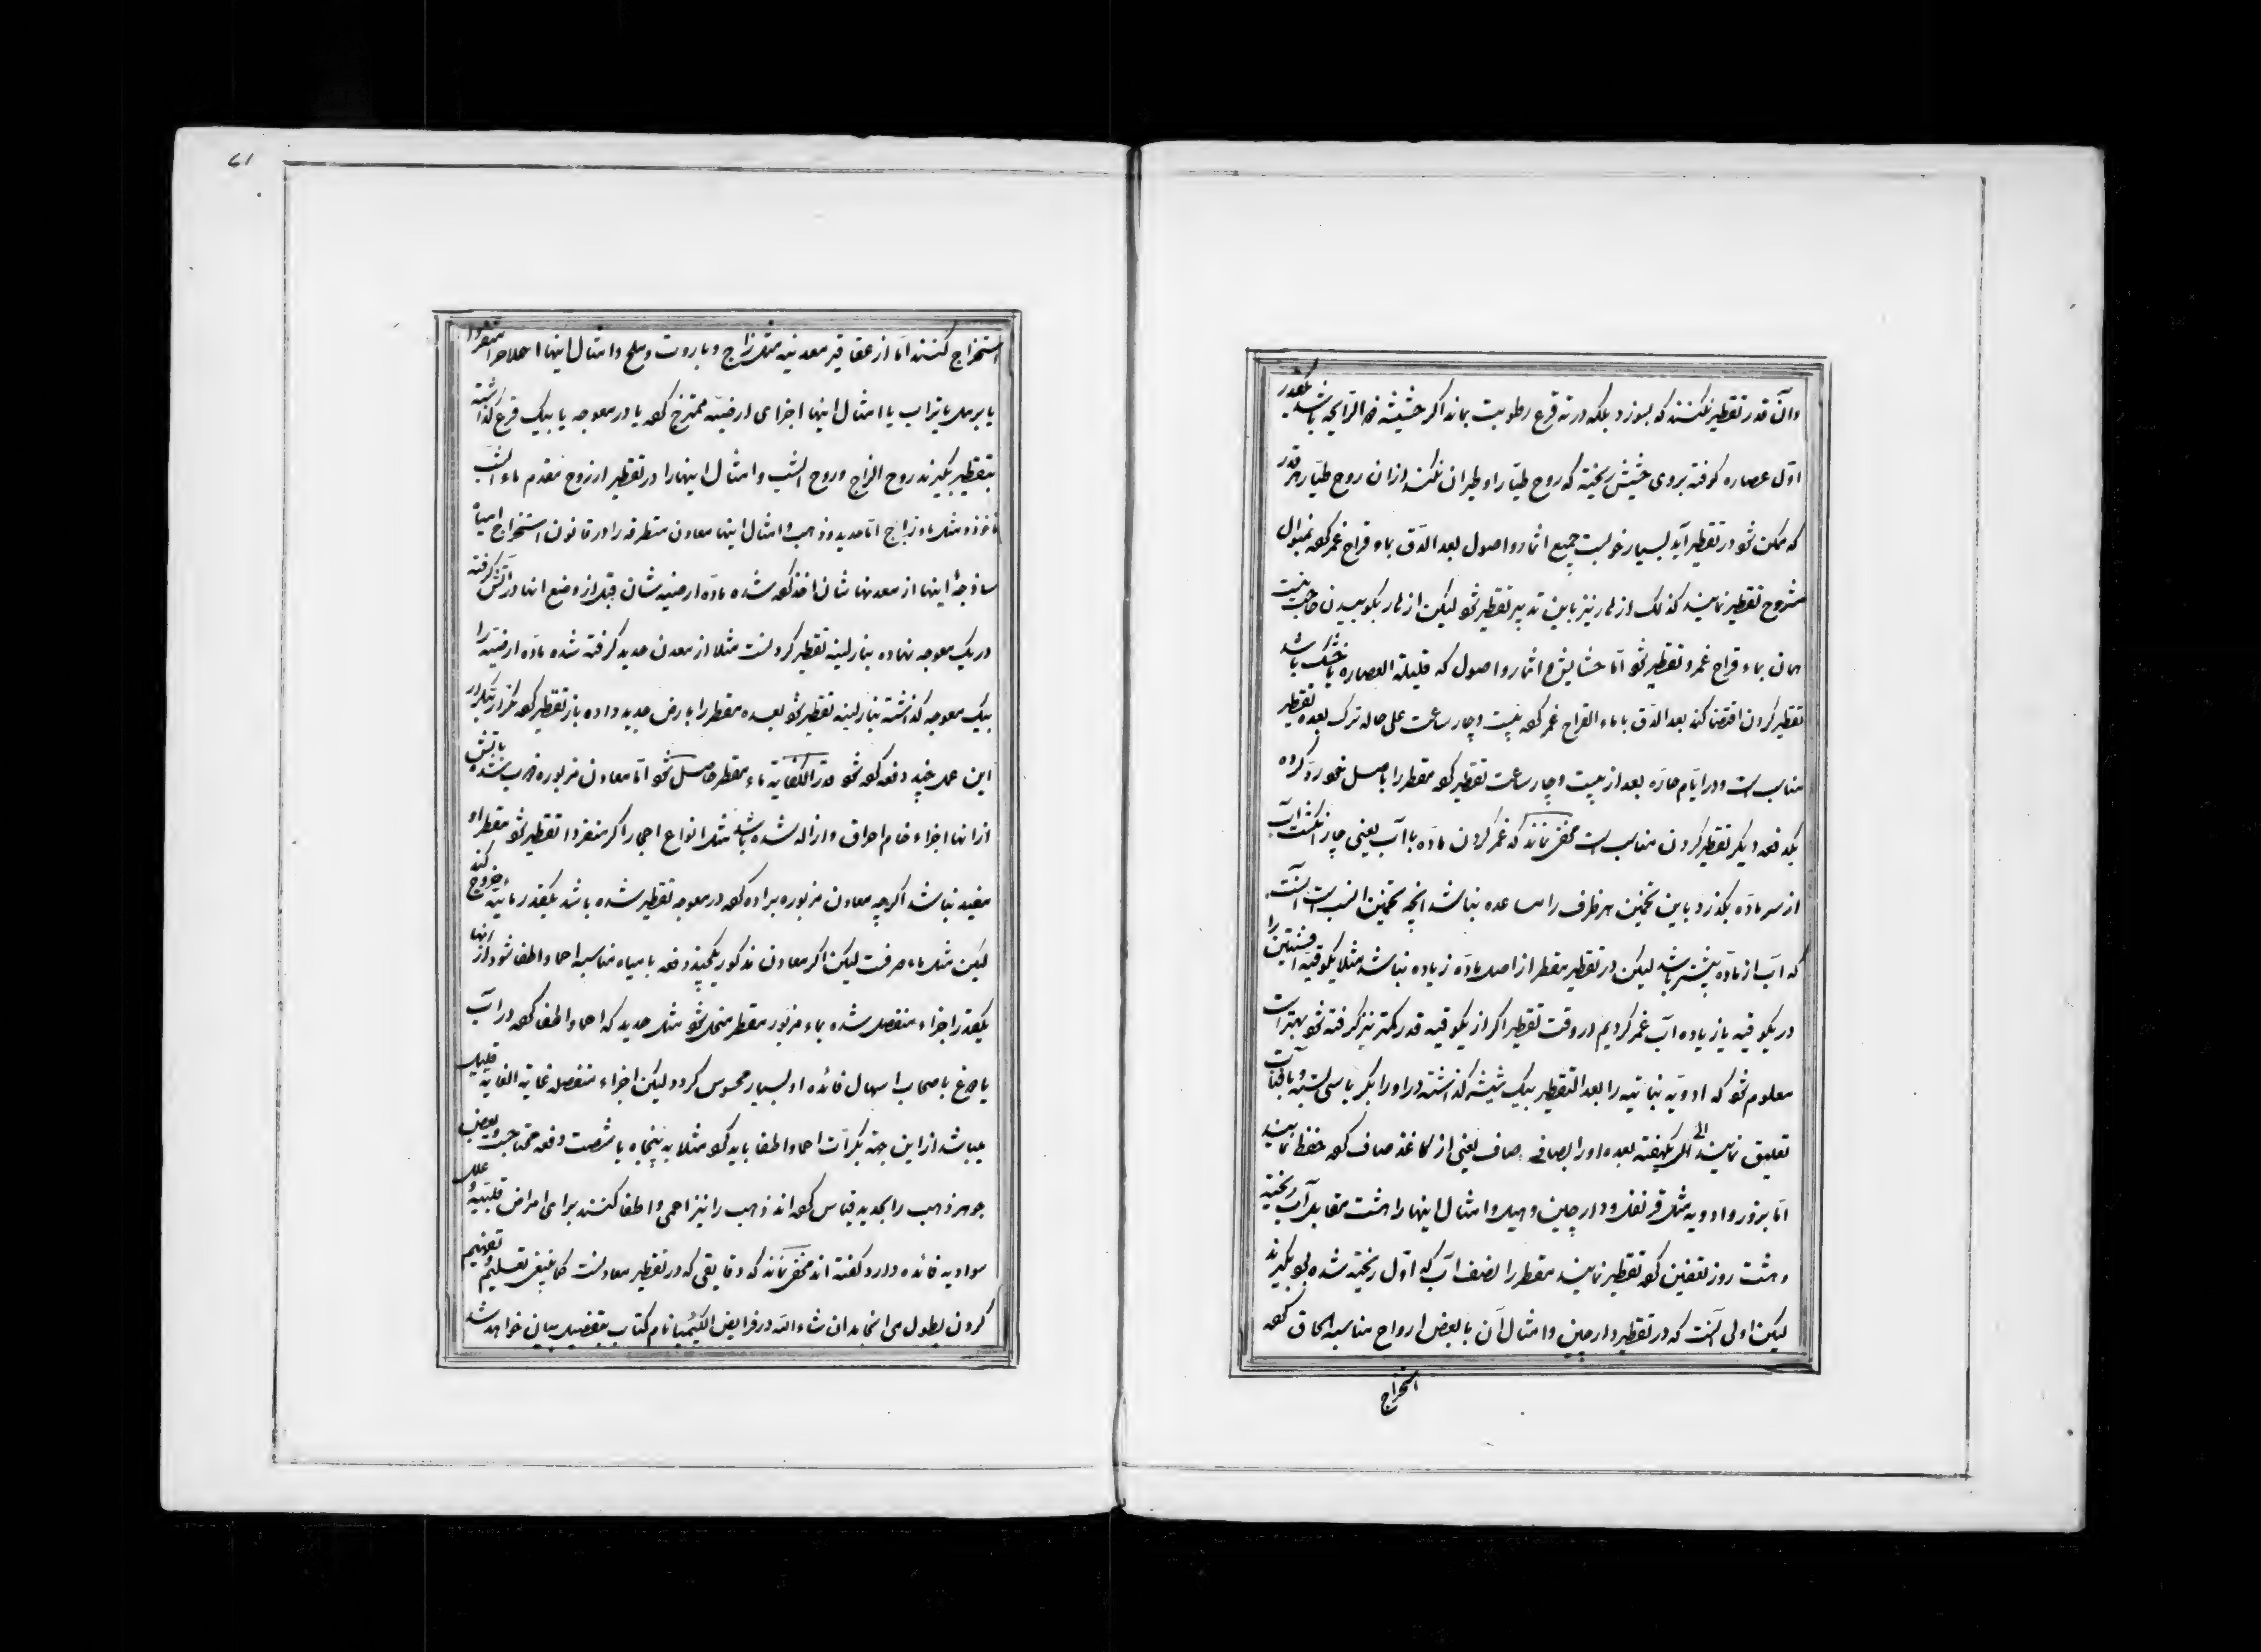 وآن قدر تقطیر نکنند که بسوزد بلکه در ته قرع رطوبت بماند اگر حشیشه قو الرایحه باشد یکقدر
اوّل عصاره کوفته بروی حشیش ریخته که روح طیّار او طیران نکند ازان روح طیّار هر قدر
که ممکن شود در تقطیر آید بسیار خوبست جمیع اثمار و اصول بعد الدّق بماء قراح غمر کرده بمنوال
مشروح تقطیر نمایند کذلک ازهار نیز باین تدبیر تقطیر شود لیکن ازهار بکوبیدن حاجت نیست
همان بماء قراح غمر و تقطیر شود امّا حشایش و اثمار و اصول که قلیلة العصاره یا خشک باشد
تقطیر کردن اقتضا کند بعد الدّق با ماء القراح غمر کرده بیست و چار ساعت علی حاله ترک بعده تقطیر
مناسب است و در ایّام حارّه بعد از بیست و چار ساعت تقطیر کرده مقطر را باصل خود ردّ کرده
یکدفعه دیگر تقطیر کردن مناسب است مخفی نماند که غمر کردن مادّه با آب یعنی چار انگشت آب
از سر مادّه بگذرد باین تخمین هر ظرف را مساعده نباشد انچه تخمین انسب است آنست
که آب از مادّه بیشتر باشد لیکن در تقطیر مقطر از اصل مادّه زیاده نباشد مثلا یکوقیه افسنتین را
در یکوقیه یا زیاده آب غمر کردیم در وقت تقطیر اگر از یکوقیه قدر کمتر نیز گرفته شود بهتر است
معلوم شود که ادویه نباتیه را بعد التقطیر بیک شیشه گذاشته در او را بکرباسی بسته و بآفتاب
تعلیق نمایند الی یکهفته بعده او را بصافی صاف یعنی از کاغذ صاف کرده حفظ نمایند
امّا بزور و ادویه مثل قرنفل و دارچین و هیل و امثال اینها را هشت مقابل آب ریخته
و هشت روز تعفین کرده تقطیر نمایند مقطر را نصف آب که اوّل ریخته شده بود بگیرند
لیکن اولی آنست که در تقطیر دارچین و امثال آن با بعض ارواح مناسبه الحاق کرده
استخراج
61
استخراج کنند امّا از عقاقیر معدنیه مثل زاج و باروت و ملح و امثال اینها املاح را منفردا
یا برمل یا تراب یا امثال اینها اجزای ارضیّه ممتزج کرده یا در معوجه یا بیک قرع گذاشته
بتقطیر بگیرند روح الزاج و روح الشب و امثال اینها را در تقطیر از روح مقدم ماء الشب
مأخوذ و مثل ماء زاج امّا حدید و ذهب و امثال اینها معادن متطرقه را در قانون استخراج امیاه
ساذجهٔ اینها از معدنها شان اخذ کرده شده مادّه ارضیه شان قبل از وضع انها در آتش گرفته
در یک معوجه نهاده بنار لینه تقطیر کردنست مثلا از معدن حدید گرفته شده مادّه ارضیّه را
بیک معوجه گذاشته بنار لینه تقطیر شود بعده مقطر را بارض جدید داده باز تقطیر کرده تکرار بتکرار
این عمل چند دفعه کرده شود قدر الکفایة ماء مقطر حاصل شود امّا معادن مزبوره ذوب شده بآتش
از انها اجزاء خام احراق و ازاله شده باشد مثل انواع احجار اگر منفردا تقطیر شود مقطر او
مفید نباشد اگرچه معادن مزبوره براده کرده در معوجه تقطیر شده باشد یکقدر مائیه خروج کند
لیکن مثل ماء صرفست لیکن اگر معادن مذکور یکچند دفعه با میاه مناسبه احما و اطفا شود از انها
یکقدر اجزاء منفصل شده بماء مزبور مقطر منحل شود مثل حدید که احما و اطفا کرده در آب
یا دوغ باصحاب اسهال فائده او بسیار محسوس گردد لیکن اجزاء منفصله غایة الغایه قلیل
میباشد ازاین جهة بکرّات احما و اطفا باید کرد مثلا به پنجاه یا شصت دفعه محتاجست و بعض
جوهر ذهب را بحدید قیاس کرده اند ذهب را نیز احمی و اطفا کنند برای امراض قلبیّه و علل
سوادیه فائده دارد گفته اند مخفی نماند که دقایقی که در تقطیر معادنست کما ینبغی تعلیم و تفهیم
کردن بطول می انجامد ان شاء الله در فرایض الکیمیا نام کتاب بتفصیل بیان خواهد شد